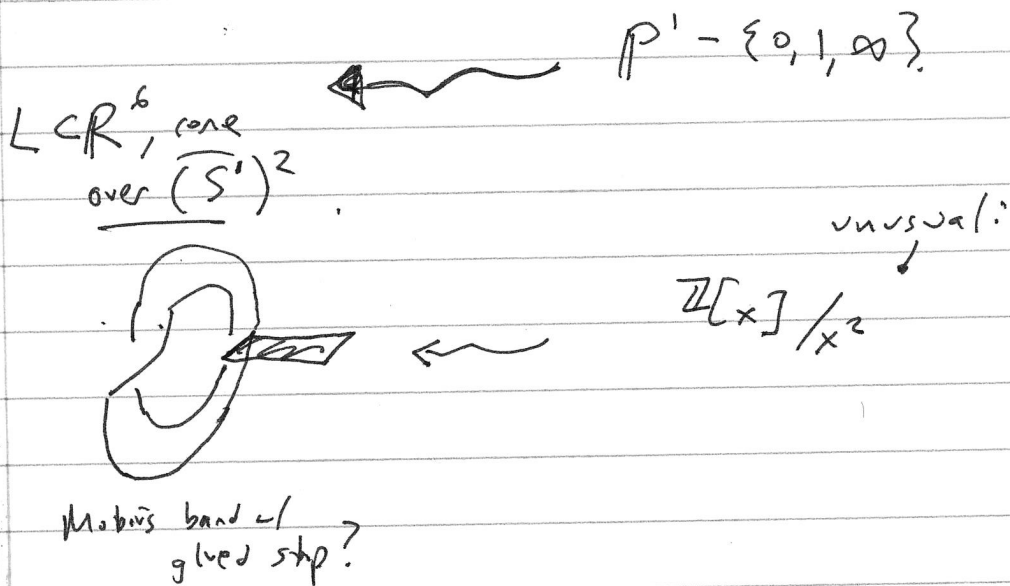 P¹ - {0, 1, ∞}
L ⊂ R⁶, cone
over (S¹)²
unusual:
Z[x]/x²
Mobius band w/
glued strip?